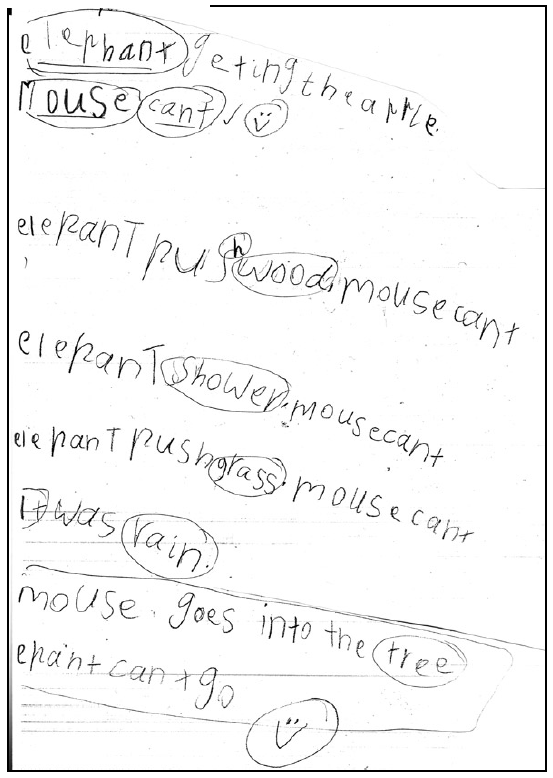 elephant geting the apple.
Mouse cant.
elepanT push wood. mouse cant
elepanT shower. mouse cant
elepanT push grass. mouse cant
It was rain.
mouse. goes into the tree
epant cant go